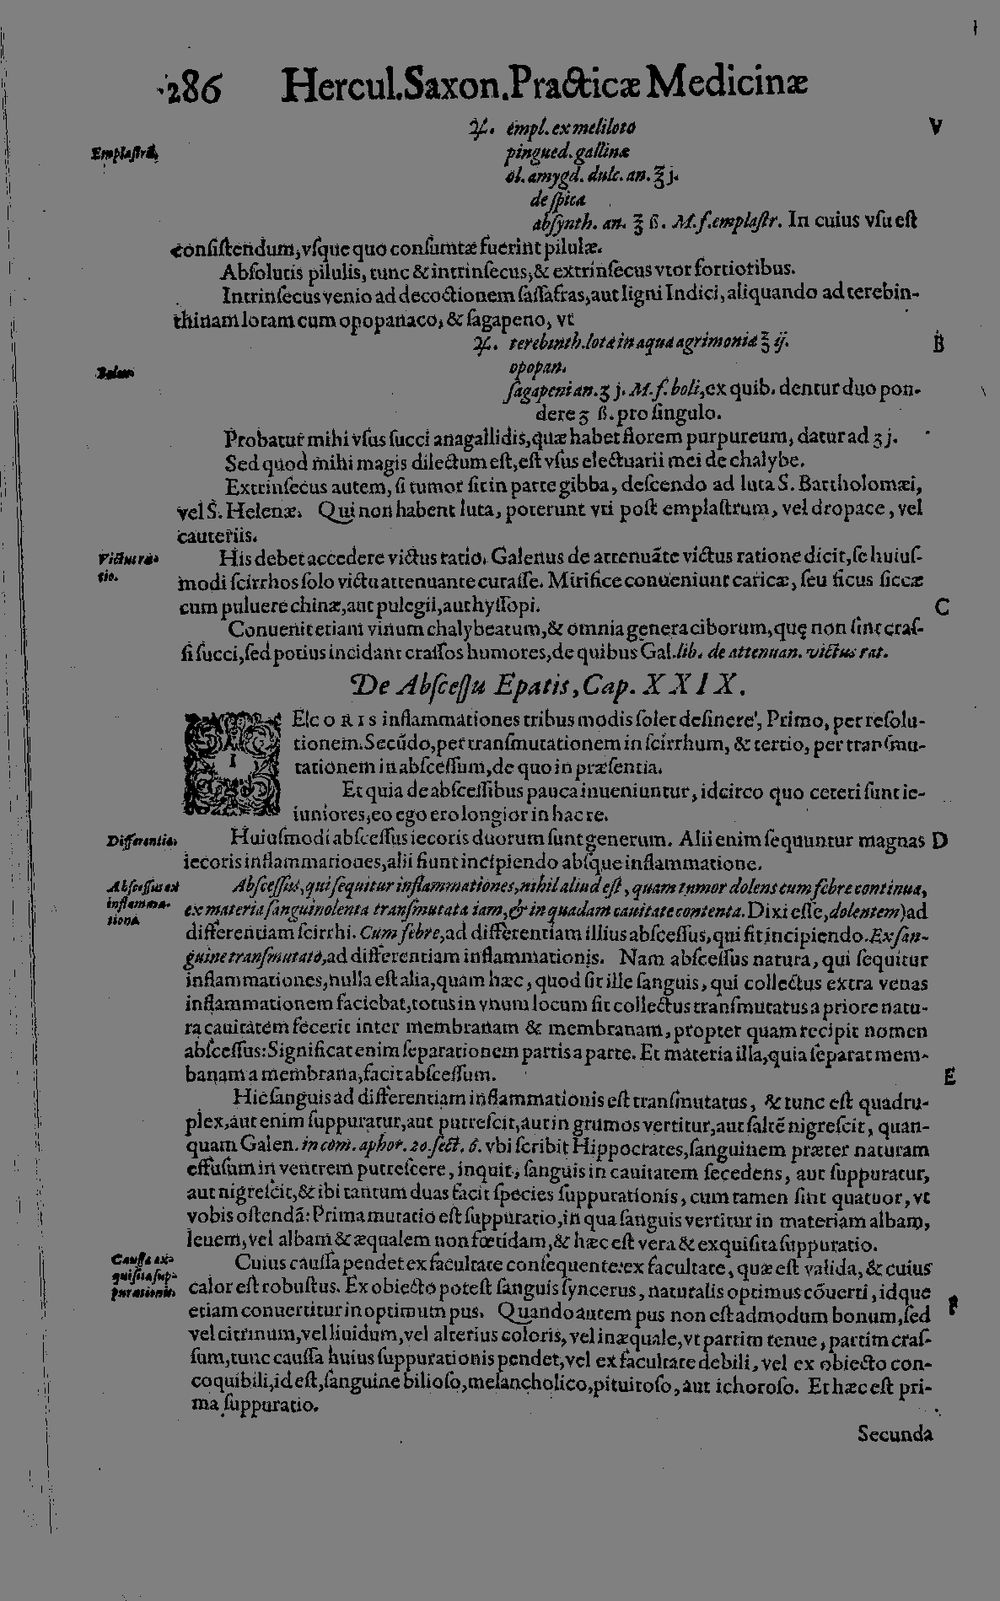 286 Hercul.Saxon.Practicæ Medicinæ
℞. empl. ex meliloto
Emplastrũ.
pingued. gallinæ
ol. amygd. dulc. an. ℥ j.
de spica
absynth. an. ℥ ß. M.f.emplastr. In cuius vsu est
consistendum, vsque quo consumtæ fuerint pilulæ.
Absolutis pilulis, tunc & intrinsecus, & extrinsecus vtor fortioribus.
Intrinsecus venio ad decoctionem sassafras, aut ligni Indici, aliquando ad terebin-
thinam lotam cum opopanaco, & sagapeno, vt
℞. terebinth. lotæ in aqua agrimoniæ ℥ ij.
B
opopan.
Bolus.
sagapeni an. ʒ j. M. f. boli, ex quib. dentur duo pon-
dere ʒ ß. pro singulo.
Probatur mihi vsus succi anagallidis, quæ habet florem purpureum, datur ad ʒ j.
Sed quod mihi magis dilectum est, est vsus electuarii mei de chalybe.
Extrinsecus autem, si tumor sit in parte gibba, descendo ad luta S. Bartholomæi,
vel S. Helenæ. Qui non habent luta, poterunt vti post emplastrum, vel dropace, vel
cauteriis.
Victus ra-
tio.
His debet accedere victus ratio. Galenus de attenuãte victus ratione dicit, se huius-
modi scirrhos solo victu attenuante curasse. Mirifice conueniunt caricæ, seu ficus siccæ
cum puluere chinæ, aut pulegii, aut hyssopi.
C
Conuenit etiam vinum chalybeatum, & omnia genera ciborum, quę non sint cras-
si succi, sed potius incidant crassos humores, de quibus Gal. lib. de attenuan. victus rat.
De Abscessu Epatis, Cap. XXIX.
IEcoris inflammationes tribus modis solet desinere, Primo, per resolu-
tionem. Secũdo, per transmutationem in scirrhum, & tertio, per transmu-
tationem in abscessum, de quo in præsentia.
Et quia de abscessibus pauca inueniuntur, idcirco quo ceteri sunt ie-
iuniores, eo ego ero longior in hac re.
Differentiæ.
Huiusmodi abscessus iecoris duorum sunt generum. Alii enim sequuntur magnas
D
iecoris inflammationes, alii fiunt incipiendo absque inflammatione.
Abscessus ex
inflamma-
tione.
Abscessus, qui sequitur inflammationes, nihil aliud est, quam tumor dolens cum febre continua,
ex materia sanguinolenta transmutata iam, & in quadam cauitate contenta. Dixi esse, dolentem) ad
differentiam scirrhi. Cum febre, ad differentiam illius abscessus, qui fit incipiendo. Ex san-
guine transmutato, ad differentiam inflammationis. Nam abscessus natura, qui sequitur
inflammationes, nulla est alia, quam hæc, quod sit ille sanguis, qui collectus extra venas
inflammationem faciebat, totus in vnum locum sit collectus transmutatus a priore natu-
ra cauitatem fecerit inter membranam & membranam, propter quam recipit nomen
abscessus: Significat enim separationem partis a parte. Et materia illa, quia separat mem-
banam a membrana, facit abscessum.
E
Hic sanguis ad differentiam inflammationis est transmutatus, & tunc est quadru-
plex, aut enim suppuratur, aut putrescit, aut in grumos vertitur, aut saltẽ nigrescit, quan-
quam Galen. in com. aphor. 20. sect. 6. vbi scribit Hippocrates, sanguinem præter naturam
effusum in ventrem putrescere, inquit, sanguis in cauitatem secedens, aut suppuratur,
aut nigrescit, & ibi tantum duas facit species suppurationis, cum tamen sint quatuor, vt
vobis ostendã: Prima mutatio est suppuratio, in qua sanguis vertitur in materiam albam,
leuem, vel albam & æqualem non fœtidam, & hæc est vera & exquisita suppuratio.
Caussa ex-
quisita sup-
purationis.
Cuius caussa pendet ex facultate consequente: ex facultate, quæ est valida, & cuius
calor est robustus. Ex obiecto potest sanguis syncerus, naturalis optimus cõuerti, idque
etiam conuertitur in optimum pus. Quando autem pus non est admodum bonum, sed
F
vel citrinum, vel liuidum, vel alterius coloris, vel inæquale, vt partim tenue, partim cras-
sum, tunc caussa huius suppurationis pendet, vel ex facultate debili, vel ex obiecto con-
coquibili, id est, sanguine bilioso, melancholico, pituitoso, aut ichoroso. Et hæc est pri-
ma suppuratio.
Secunda